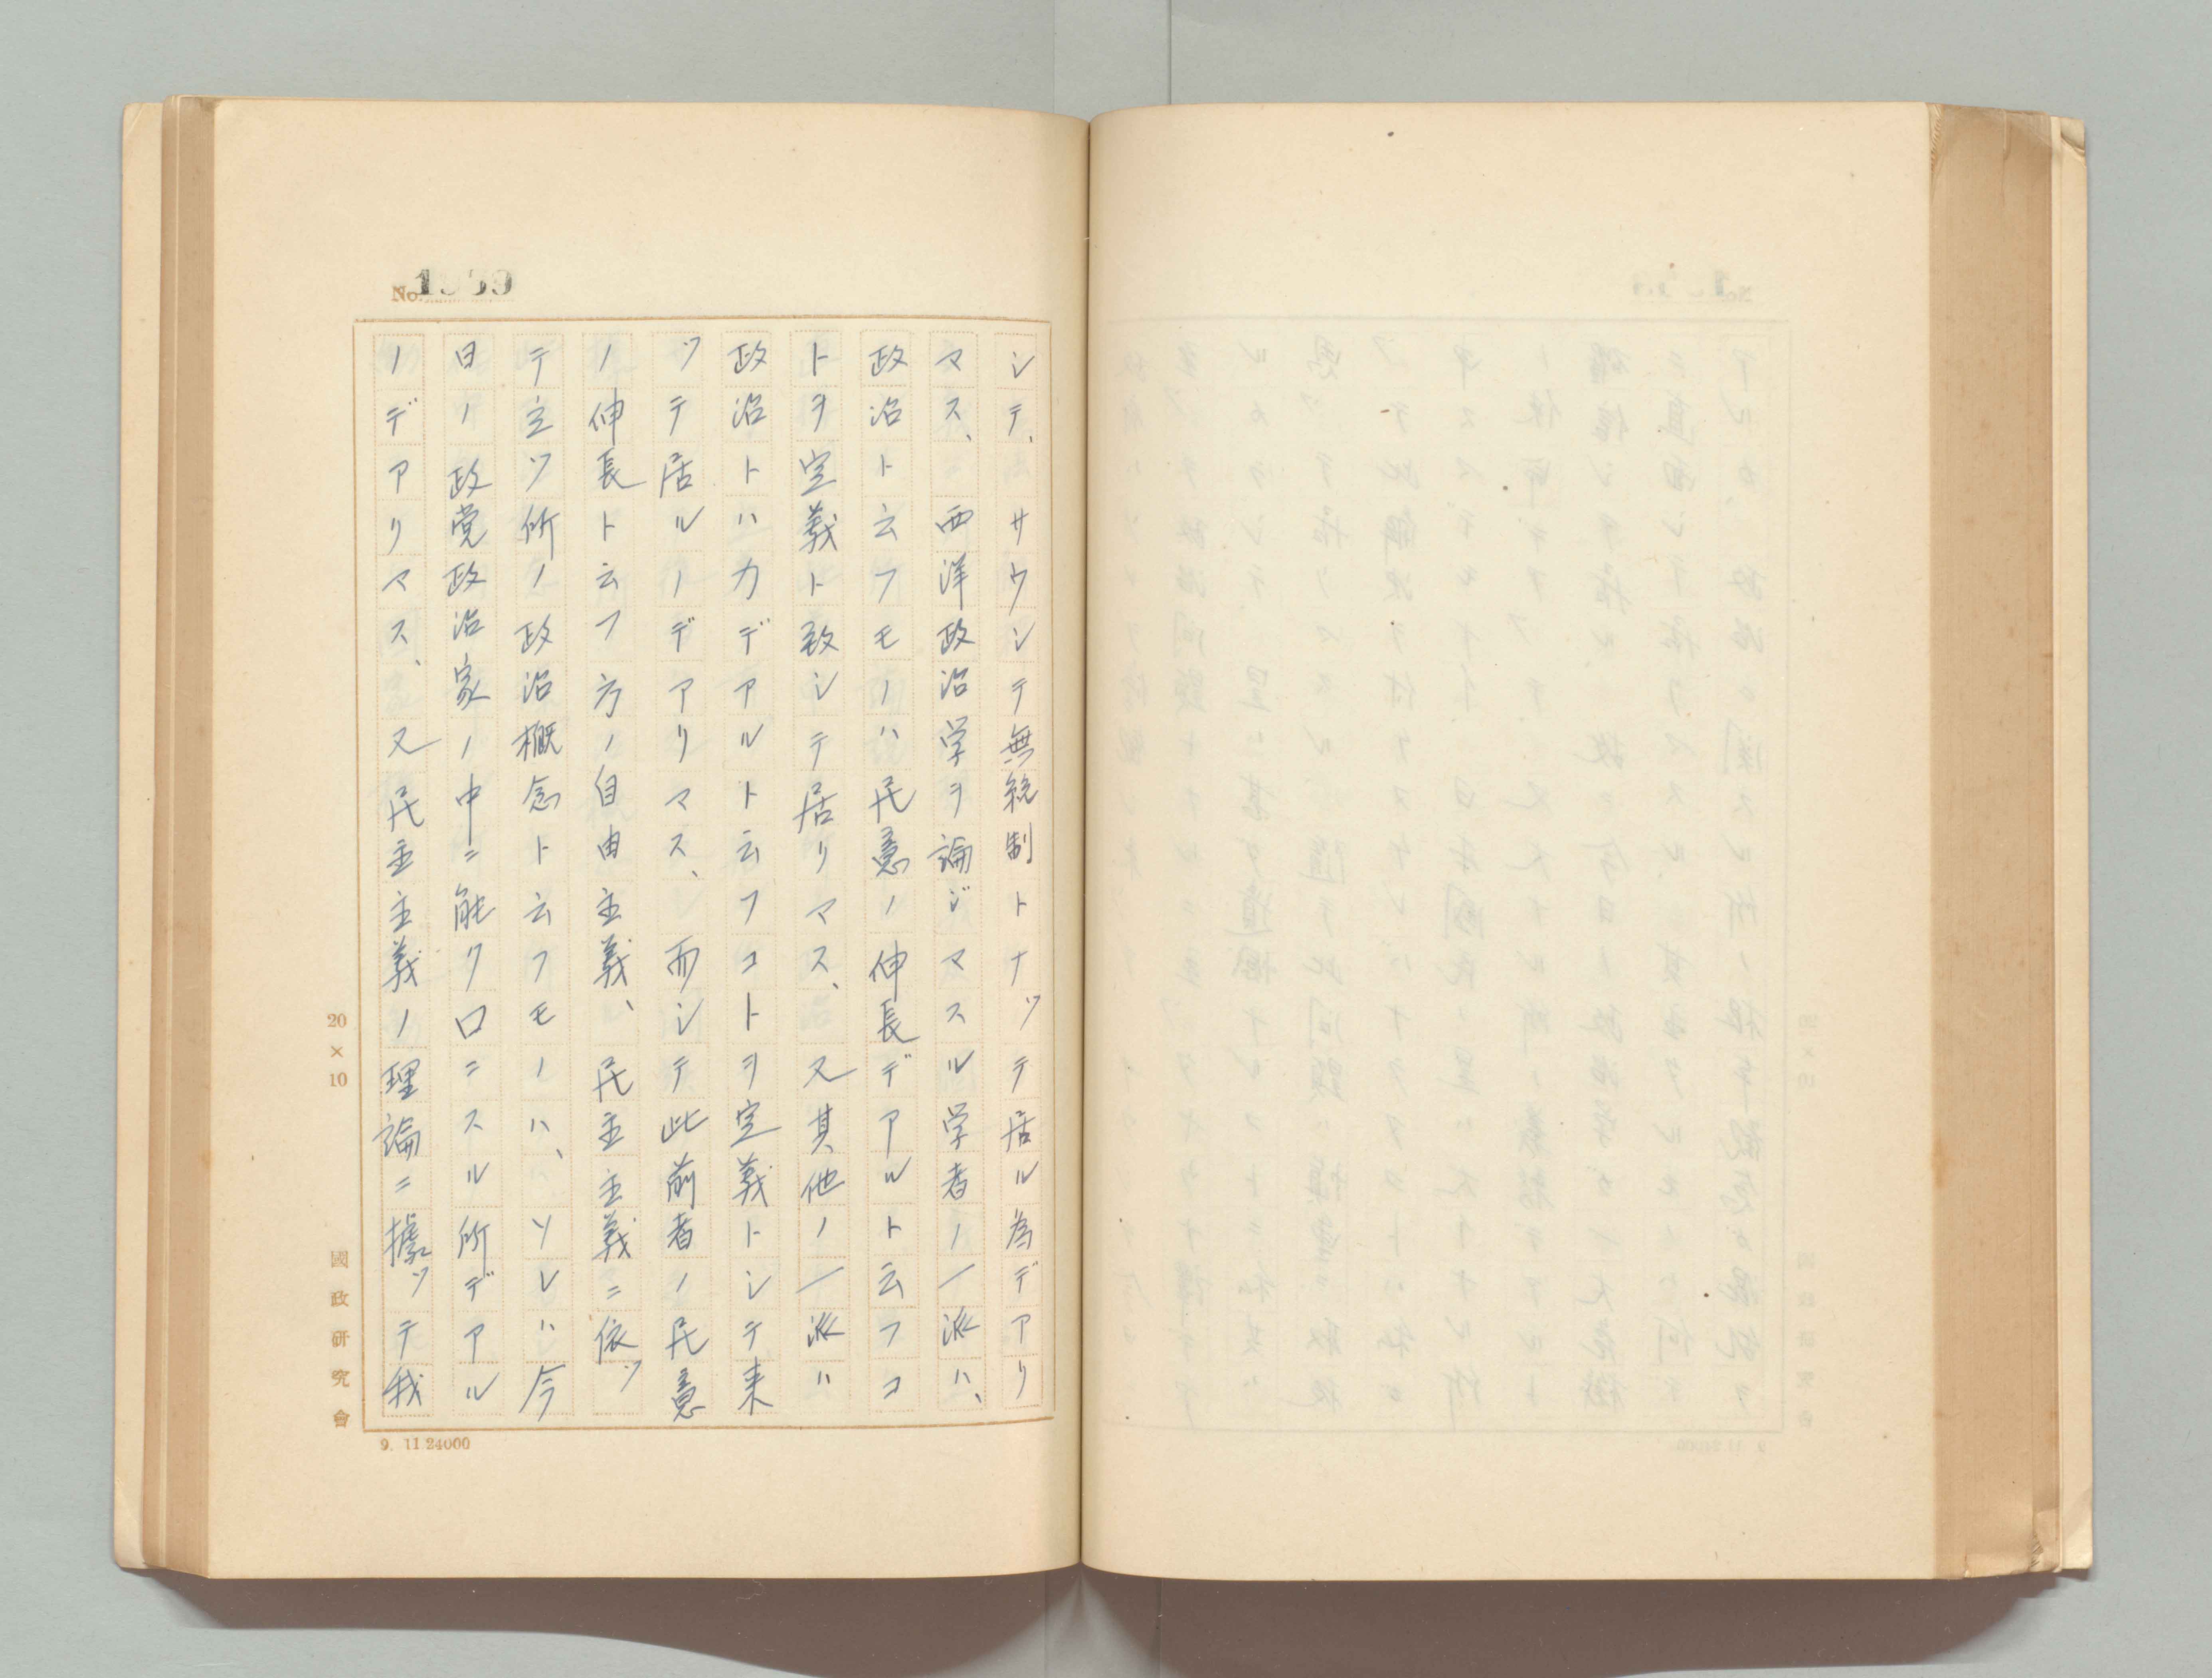 No.
シテ、サウシテ無統制トナツテ居ル為デアリ
マス、西洋政治学ヲ論ジマスル学者ノ一派ハ、
政治ト云フモノハ民意ノ伸長デアルト云フコ
トヲ定義ト致シテ居リマス、又其他ノ一派ハ
政治トハ力デアルト云フコトヲ定義トシテ来
ツテ居ルノデアリマス、而シテ此前者ノ民意
ノ伸長ト云フ方ノ自由主義、民主主義ニ依ツ
テ立ツ所ノ政治概念ト云フモノハ、ソレハ今
日ノ政党政治家ノ中ニ能ク口ニスル所デアル
ノデアリマス、又民主主義ノ理論ニ據ツテ我
20×10
國政研究會
9. 11.24000